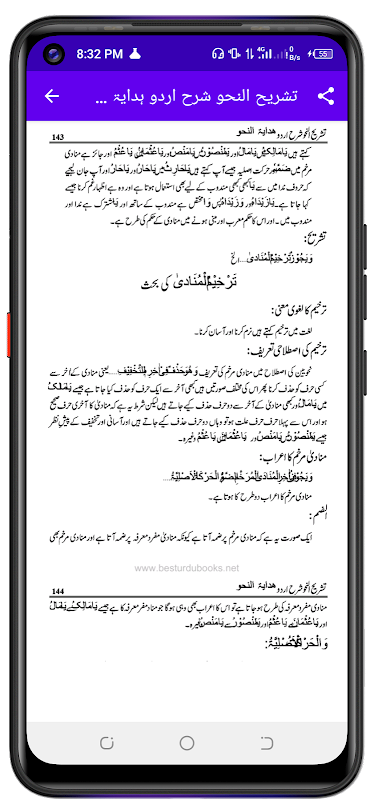 8:32 PM
4G
0
B/s
55
تشریح النحو شرح اردو ہدایۃ ...
تشریح النحو شرح اردو هدایة النحو 143
کہتے ہیں یَامَالِکُ میں یَامَالُ اور یَامَنْصُوْرُ میں یَامَنْصُ اور یَاعُثْمَانُ میں یَاعُثْمُ اور جائز ہے منادی
مرخم میں ضمہ اور حرکت اصلیہ جیسے آپ کہتے ہیں یَاحَارِثُ میں یَاحَارُ اور یَاحَارِ اور آپ جان لیجیے
کہ حروف ندا میں سے یا کبھی کبھی مندوب کے لیے بھی استعمال ہوتا ہے اور وہ ہے اظہار غم کرنا جیسے
کہا جاتا ہے یَازَیْدَاہُ اور وَازَیْدَاہُ پس وا مختص ہے مندوب کے ساتھ اور یا مشترک ہے ندا اور
مندوب میں۔ اور اس کا حکم معرب اور مبنی ہونے میں منادی کے حکم کی طرح ہے۔
تشریح:
وَیَجُوْزُ تَرْخِیْمُ الْمُنَادٰی....الخ
تَرْخِیْمُ الْمُنَادٰی کی بحث
ترخیم کا لغوی معنی:
لغت میں ترخیم کہتے ہیں نرم کرنا اور آسان کرنا۔
ترخیم کی اصطلاحی تعریف:
نحویین کی اصطلاح میں منادی مرخم کی تعریف وَهُوَ حَذْفٌ فِیْ اٰخِرِہٖ لِلتَّخْفِیْفِ یعنی منادی کے آخر سے
کسی حرف کو حذف کرنا پھر اس کی مختلف صورتیں ہیں کبھی آخر سے ایک حرف کو حذف کیا جاتا ہے جیسے یَامَالِکُ
میں یَامَالُ اور کبھی منادی کے آخر سے دو حرف حذف کیے جاتے ہیں لیکن شرط یہ ہے کہ منادی کا آخری حرف صحیح
ہو اور اس سے پہلا حرف حرف علت ہو تو وہاں دو حرف حذف کیے جاتے ہیں اور آسانی اور تخفیف کے پیش نظر
جیسے یَامَنْصُوْرُ سے یَامَنْصُ اور یَاعُثْمَانُ سے یَاعُثْمُ وغیرہ۔
منادی مرخم کا اعراب:
وَیَجُوْزُ فِیْ اٰخِرِ الْمُنَادٰی الْمُرَخَّمِ الضَّمَّةُ وَالْحَرَکَةُ الْاَصْلِیَّةُ
منادی مرخم کا اعراب دو طرح کا ہوتا ہے۔
الضم:
ایک صورت یہ ہے کہ منادی مرخم پر ضمہ آتا ہے کیونکہ منادی مفرد معرفہ پر ضمہ آتا ہے اور منادی مرخم بھی
www.besturdubooks.net
تشریح النحو شرح اردو هدایة النحو 144
منادی مفرد معرفہ کی طرح ہو جاتا ہے تو اس کا اعراب بھی وہی ہوگا جو منادی مفرد معرفہ کا ہے جیسے یَامَالِکُ سے یَامَالُ
اور یَاعُثْمَانُ سے یَاعُثْمُ اور یَامَنْصُوْرُ سے یَامَنْصُ وغیرہ۔
وَالْحَرَکَةُ الْاَصْلِیَّةُ: